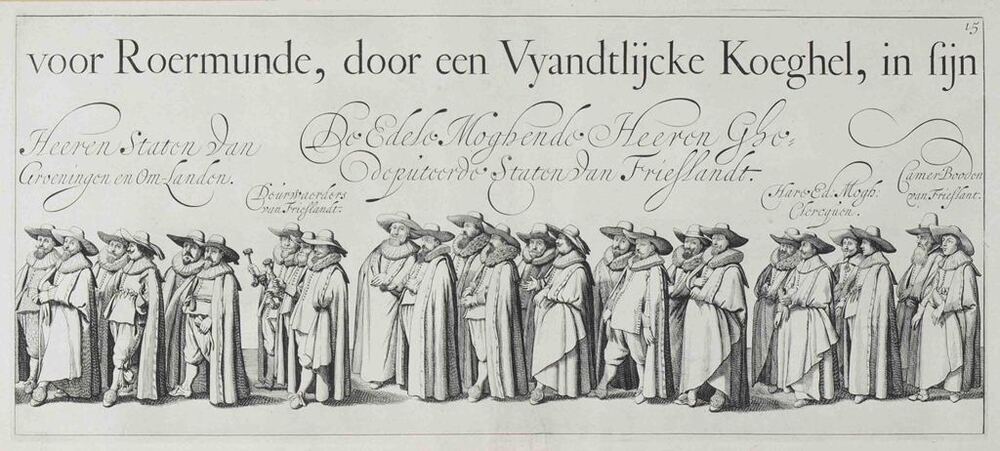 15
voor Roermunde, door een Vyandtlijcke Koeghel, in sijn
Heeren Staten Van
Groeningen en Om-Landen.
De Edele Moghende Heeren Ghe=
deputeerde Staten Van Frieslandt.
Deurwaerders
van Frieslandt.
Hare Ed. Mogh.
Clercquen.
Camer Booden
van Frieslant.